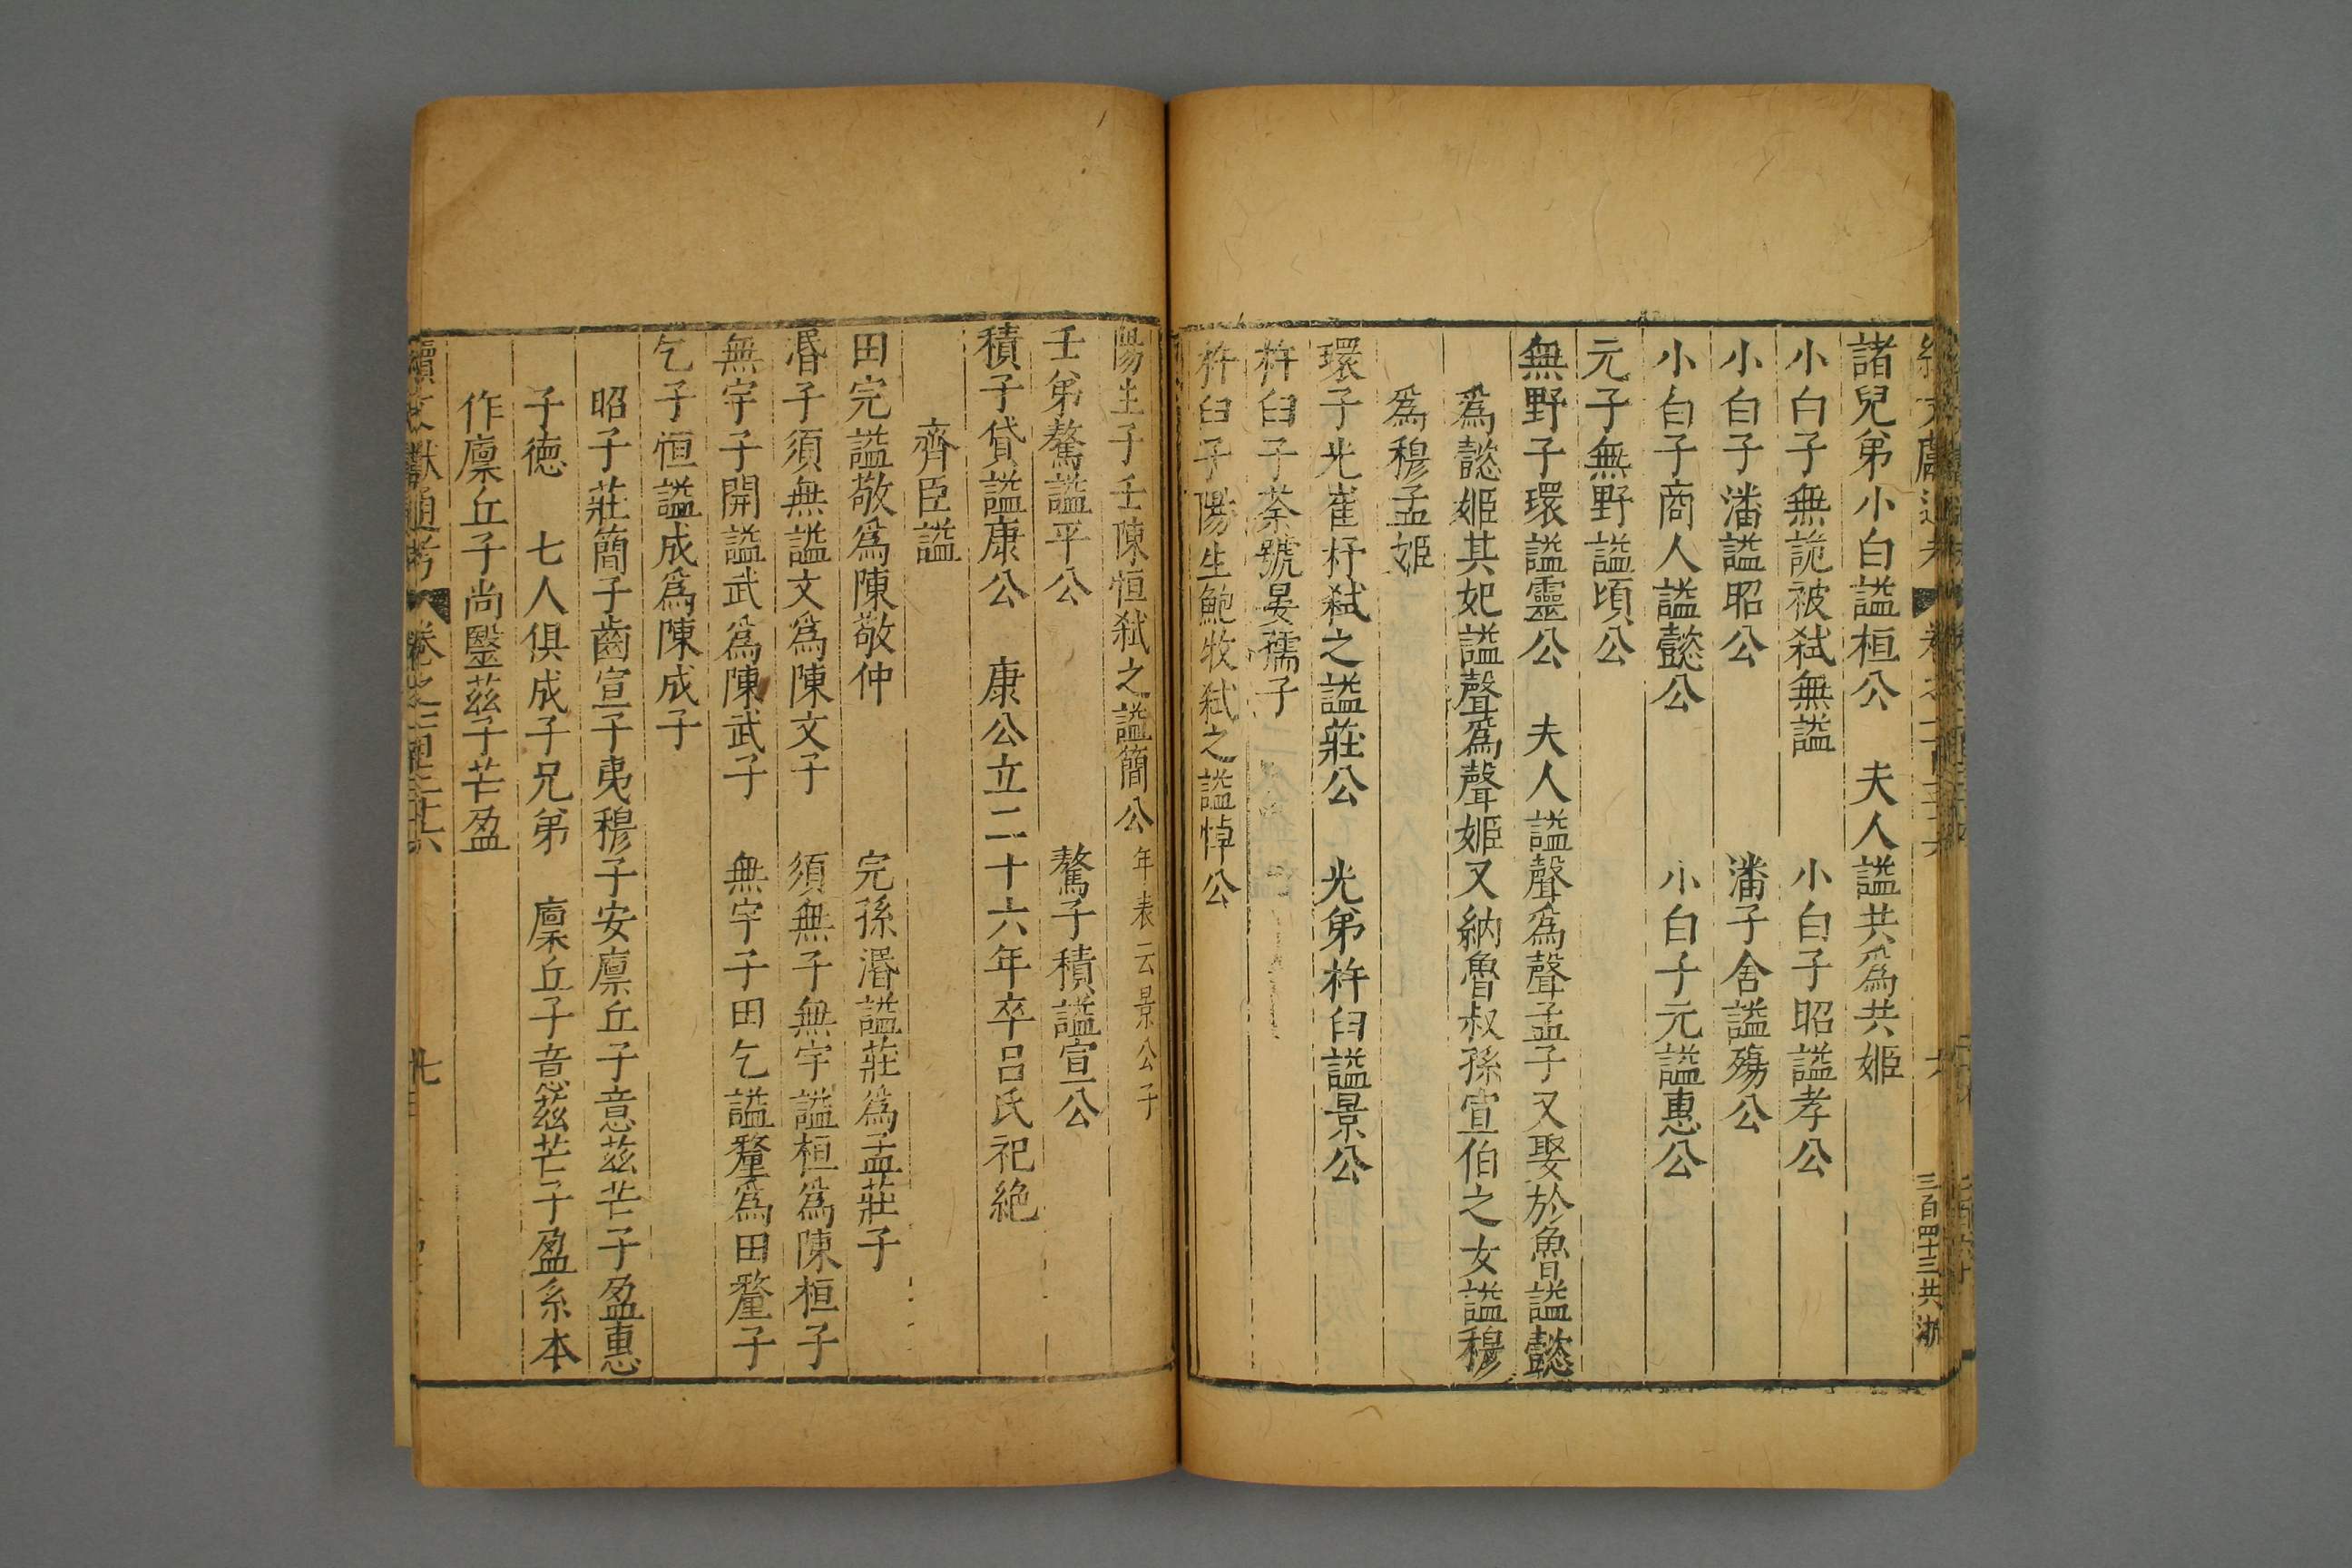 諸兒弟小白謚桓公　夫人謚共爲共姬
小白子無詭被弑無謚　小白子昭謚孝公
小白子潘謚昭公　潘子舍謚殤公
小白子商人謚懿公　小白子元謚惠公
元子無野謚頃公
無野子環謚靈公　夫人謚聲爲聲孟子又娶於魯謚懿
爲懿姬其妃謚聲爲聲姬又納魯叔孫宣伯之女謚穆
爲穆孟姬
環子光崔杼弑之謚莊公　光弟杵臼謚景公
杵臼子荼號晏孺子
杵臼子陽生鮑牧弑之謚悼公
三百四十三共 浙
陽生子壬陳恒弑之謚簡公年表云景公子
壬弟驁謚平公　驁子積謚宣公
積子貸謚康公　康公立二十六年卒呂氏祀絶
齊臣謚
田完謚敬爲陳敬仲　完孫湣謚莊爲孟莊子
湣子須無謚文爲陳文子　須無子無宇謚桓爲陳桓子
無宇子開謚武爲陳武子　無宇子田乞謚釐爲田釐子
乞子恒謚成爲陳成子
昭子莊簡子齒宣子夷穆子安廪丘子意茲芒子盈惠
子德　七人俱成子兄弟　廪丘子意茲芒子盈系本
作廪丘子尚毉茲子芒盈
續文獻通考　卷之一百三十六　七